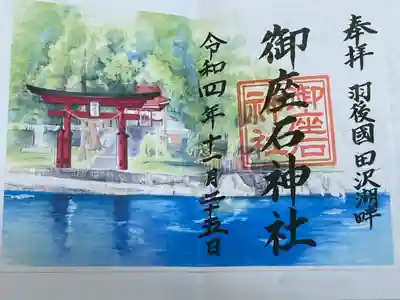 奉拝 羽後國田沢湖畔
御座石神社
御坐石
神社
令和四年十一月二十五日